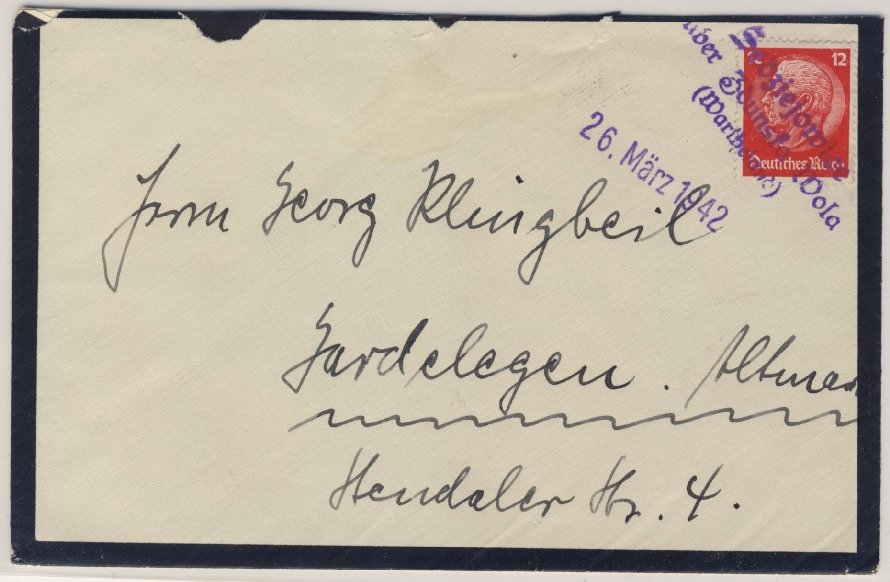 12 12
Deutsches Reich
über Wola
(Wartheland)
26. März 1942
Herrn Georg Klingbeil
Gardelegen. Altmark
Stendaler Str. 4.